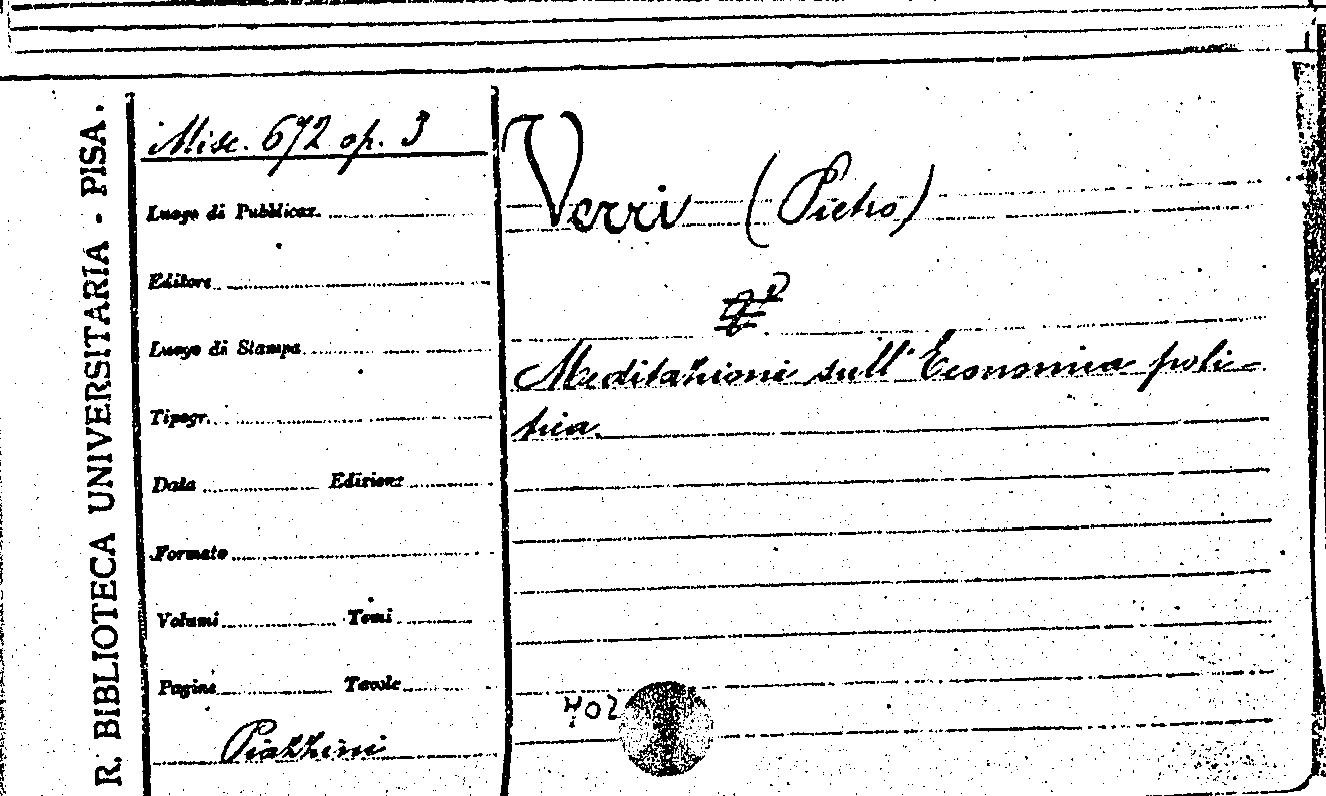 R. BIBLIOTECA UNIVERSITARIA - PISA.
Misc. 672 op. 3
Luogo di Pubblicaz.
Editore
Luogo di Stampa
Tipogr.
Data Edizione
Formato
Volumi Tomi
Pagine Tavole
Piazzini
Verri (Pietro)
Meditazioni sull' Economia poli=
tica.
402